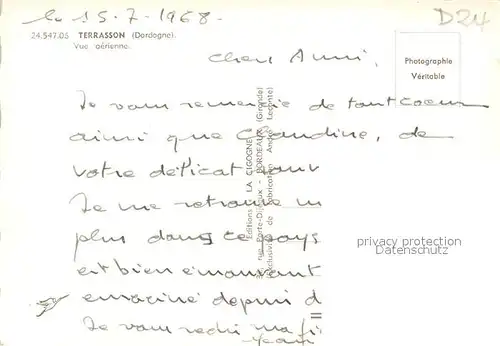 le 15-7-1968.
D24
24.547.05 TERRASSON (Dordogne).
Vue aérienne.
Photographie
Véritable
Cher Ami,
Je vous remercie de tout coeur
ainsi que Claudine, de
votre délicat
Je me retrouve
plus dans ce pays
est bien émouvant
depuis
Je vous redis ma
Jean
Editions LA CIGOGNE
rue Porte-Dijeaux - BORDEAUX (Gironde)
Exclusivité de fabrication André Leconte)
privacy protection
Datenschutz